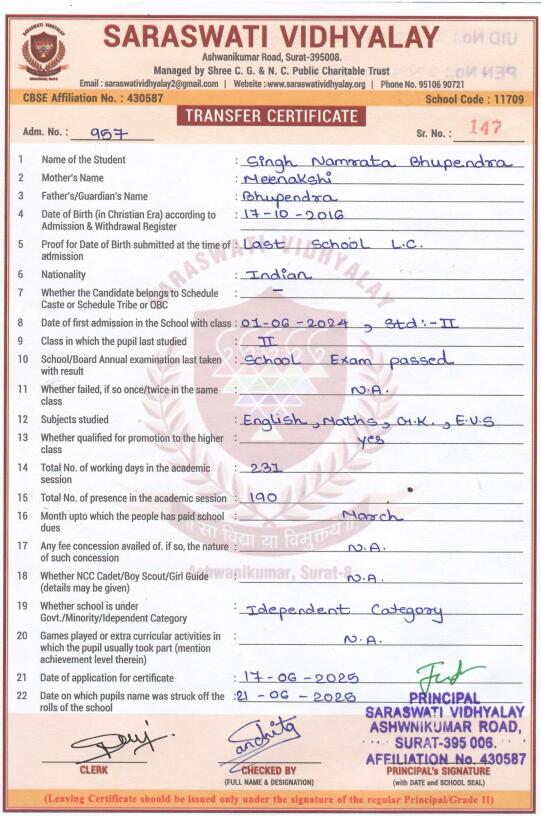 SARASWATI VIDHYALAY
SARASWATI VIDHYALAY
Ashwanikumar Road, Surat-395008.
Managed by Shree C. G. & N. C. Public Charitable Trust
Email : saraswatividhyalay2@gmail.com | Website :www.saraswatividhyalay.org | Phone No. 95106 90721
CBSE Affiliation No. : 430587 School Code : 11709
TRANSFER CERTIFICATE
Adm. No. : 957 Sr. No. : 147
1 Name of the Student : Singh Namrata Bhupendra
2 Mother's Name : Meenakshi
3 Father's/Guardian's Name : Bhupendra
4 Date of Birth (in Christian Era) according to : 17-10-2016
Admission & Withdrawal Register
5 Proof for Date of Birth submitted at the time of : Last School L.C.
admission
6 Nationality : Indian
7 Whether the Candidate belongs to Schedule : –
Caste or Schedule Tribe or OBC
8 Date of first admission in the School with class : 01-06-2024, Std:-II
9 Class in which the pupil last studied : II
10 School/Board Annual examination last taken : School Exam passed
with result
11 Whether failed, if so once/twice in the same : N.A.
class
12 Subjects studied : English, Maths, G.K., E.V.S
13 Whether qualified for promotion to the higher : yes
class
14 Total No. of working days in the academic : 231
session
15 Total No. of presence in the academic session : 190
16 Month upto which the people has paid school : March
dues
17 Any fee concession availed of. if so, the nature : N.A.
of such concession
18 Whether NCC Cadet/Boy Scout/Girl Guide : N.A.
(details may be given)
19 Whether school is under : Idependent Category
Govt./Minority/Idependent Category
20 Games played or extra curricular activities in : N.A.
which the pupil usually took part (mention
achievement level therein)
21 Date of application for certificate : 17-06-2025
22 Date on which pupils name was struck off the : 21-06-2025
rolls of the school
SARASWATI VIDHYALAY
सा विद्या या विमुक्तये
Ashwanikumar, Surat-8
PRINCIPAL
SARASWATI VIDHYALAY
ASHWNIKUMAR ROAD,
SURAT-395 006.
AFFILIATION NO. 430587
CLERK
CHECKED BY
(FULL NAME & DESIGNATION)
PRINCIPAL's SIGNATURE
(with DATE and SCHOOL SEAL)
(Leaving Certificate should be issued only under the signature of the regular Principal/Grade II)